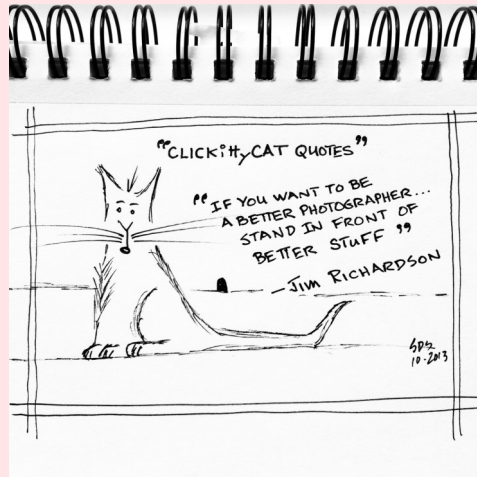 "CLICKittyCAT QUOTES"
"IF YOU WANT TO BE
A BETTER PHOTOGRAPHER...
STAND IN FRONT OF
BETTER STUFF"
—JIM RICHARDSON
SDS
10-2013